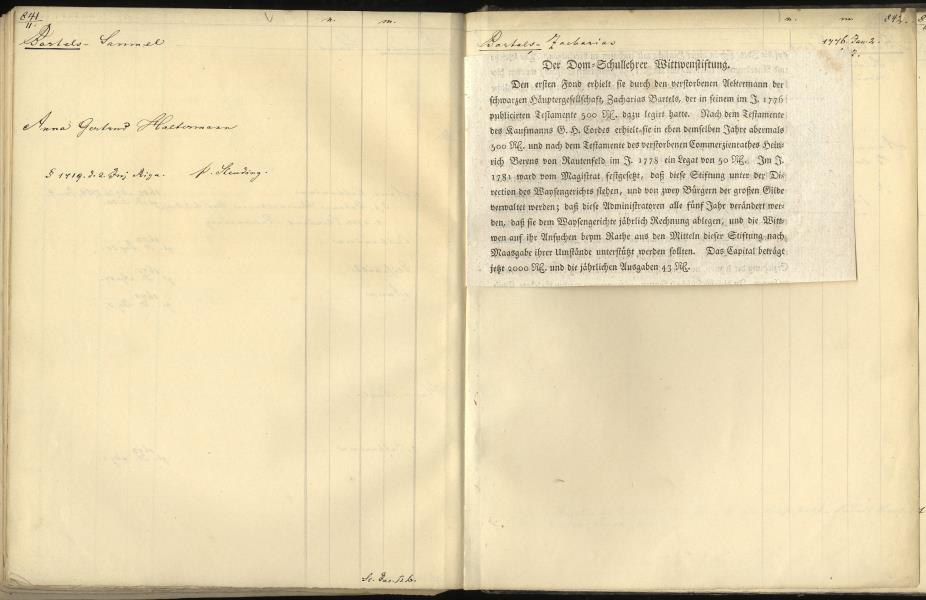 841
II.
n. m.
Bartels - Samuel
Anna Gertrud Haltermann
§ 1719. d. 2. Riga.
n. m. 842.
Bartels - Zacharias 1776. Jan. 2.
Der Dom-Schullehrer Wittwenstiftung.
Den ersten Fond erhielt sie durch den verstorbenen Aeltermann der
schwarzen Häuptergesellschaft, Zacharias Bartels, der in seinem im J. 1776
publicirten Testamente 500 Rℓ. dazu legirt hatte. Nach dem Testamente
des Kaufmanns G. H. Cordes erhielt sie in eben demselben Jahre abermals
500 Rℓ. und nach dem Testamente des verstorbenen Commerzienrathes Hein-
rich Berens von Rautenfeld im J. 1778 ein Legat von 50 Rℓ. Im J.
1781 ward vom Magistrat festgesetzt, daß diese Stiftung unter der Di-
rection des Waysengerichts stehen, und von zwey Bürgern der großen Gilde
verwaltet werden; daß diese Administratoren alle fünf Jahr verändert wer-
den, daß sie dem Waysengerichte jährlich Rechnung ablegen, und die Witt-
wen auf ihr Ansuchen beym Rathe aus den Mitteln dieser Stiftung nach
Maasgabe ihrer Umstände unterstützt werden sollten. Das Capital beträgt
jetzt 2000 Rℓ. und die jährlichen Ausgaben 43 Rℓ.